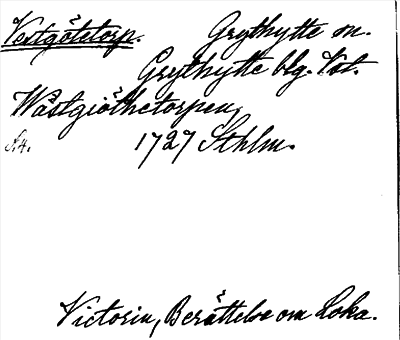 Vestgötetorp. Grythytte sn.
Grythytte blg. Vstl.
Wästgiöthetorpen,
S. 4. 1727 Sthlm.
Victorin, Berättelse om Loka.